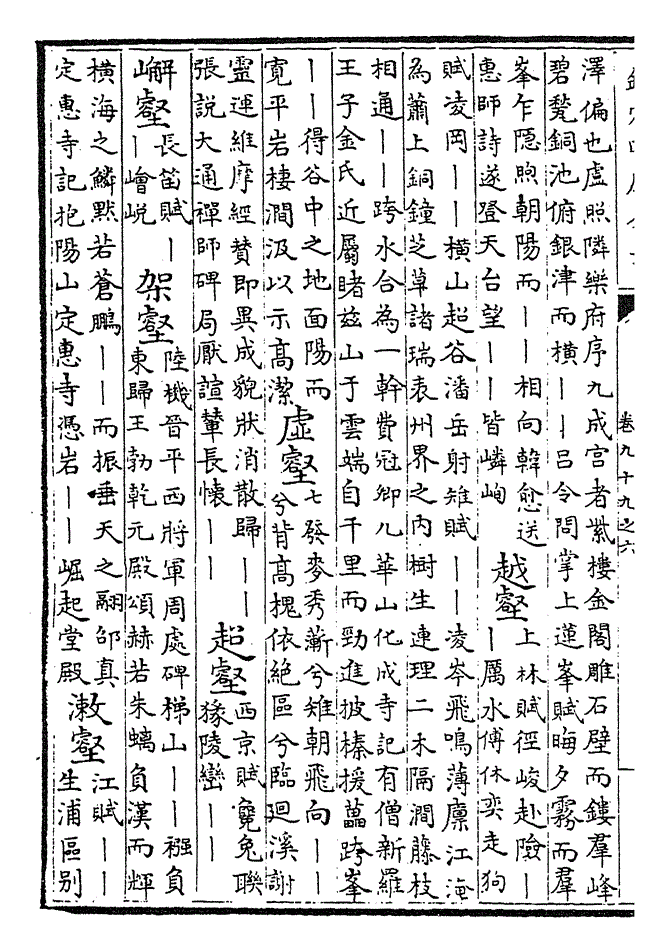 卷九十九之六
澤偏也虛照隣樂府序九成宮者紫樓金閣雕石壁而鏤羣峰
碧甃銅池俯銀津而橫丨丨呂令問掌上蓮峯賦晦夕霧而羣
峯乍隱煦朝陽而丨丨相向韓愈送
惠師詩遂登天台望丨丨皆嶙峋
越壑
上林賦徑峻赴險丨
丨厲水傅休奕走狗
賦凌岡丨丨橫山超谷潘岳射雉賦丨丨凌岑飛鳴薄廩江淹
為蕭上銅鐘芝草諸瑞表州界之内樹生連理二木隔澗藤枝
相通丨丨跨水合為一幹費冠卿九華山化成寺記有僧新羅
王子金氏近屬睹兹山于雲端自千里而勁進披榛援藟跨峯
丨丨得谷中之地面陽而
寛平岩棲澗汲以示高潔
虛壑
七發麥秀蔪兮雉朝飛向丨丨
兮背高槐依絕區兮臨迴溪謝
靈運維摩經贊即異成貌狀消散歸丨丨
張説大通禪師碑局厭諠輦長懷丨丨
超壑
西京賦毚兔聯
猭陵巒丨丨
嶰壑
長笛賦丨
丨
架壑
陸機晉平西將軍周處碑梯山丨丨襁負
東歸王勃乾元殿頌赫若朱螭負漢而輝
橫海之鱗默若蒼鵬丨丨而振垂天之翮邰真
定惠寺記抱陽山定惠寺憑岩丨丨崛起堂殿
漱壑
江賦丨丨
生浦區别